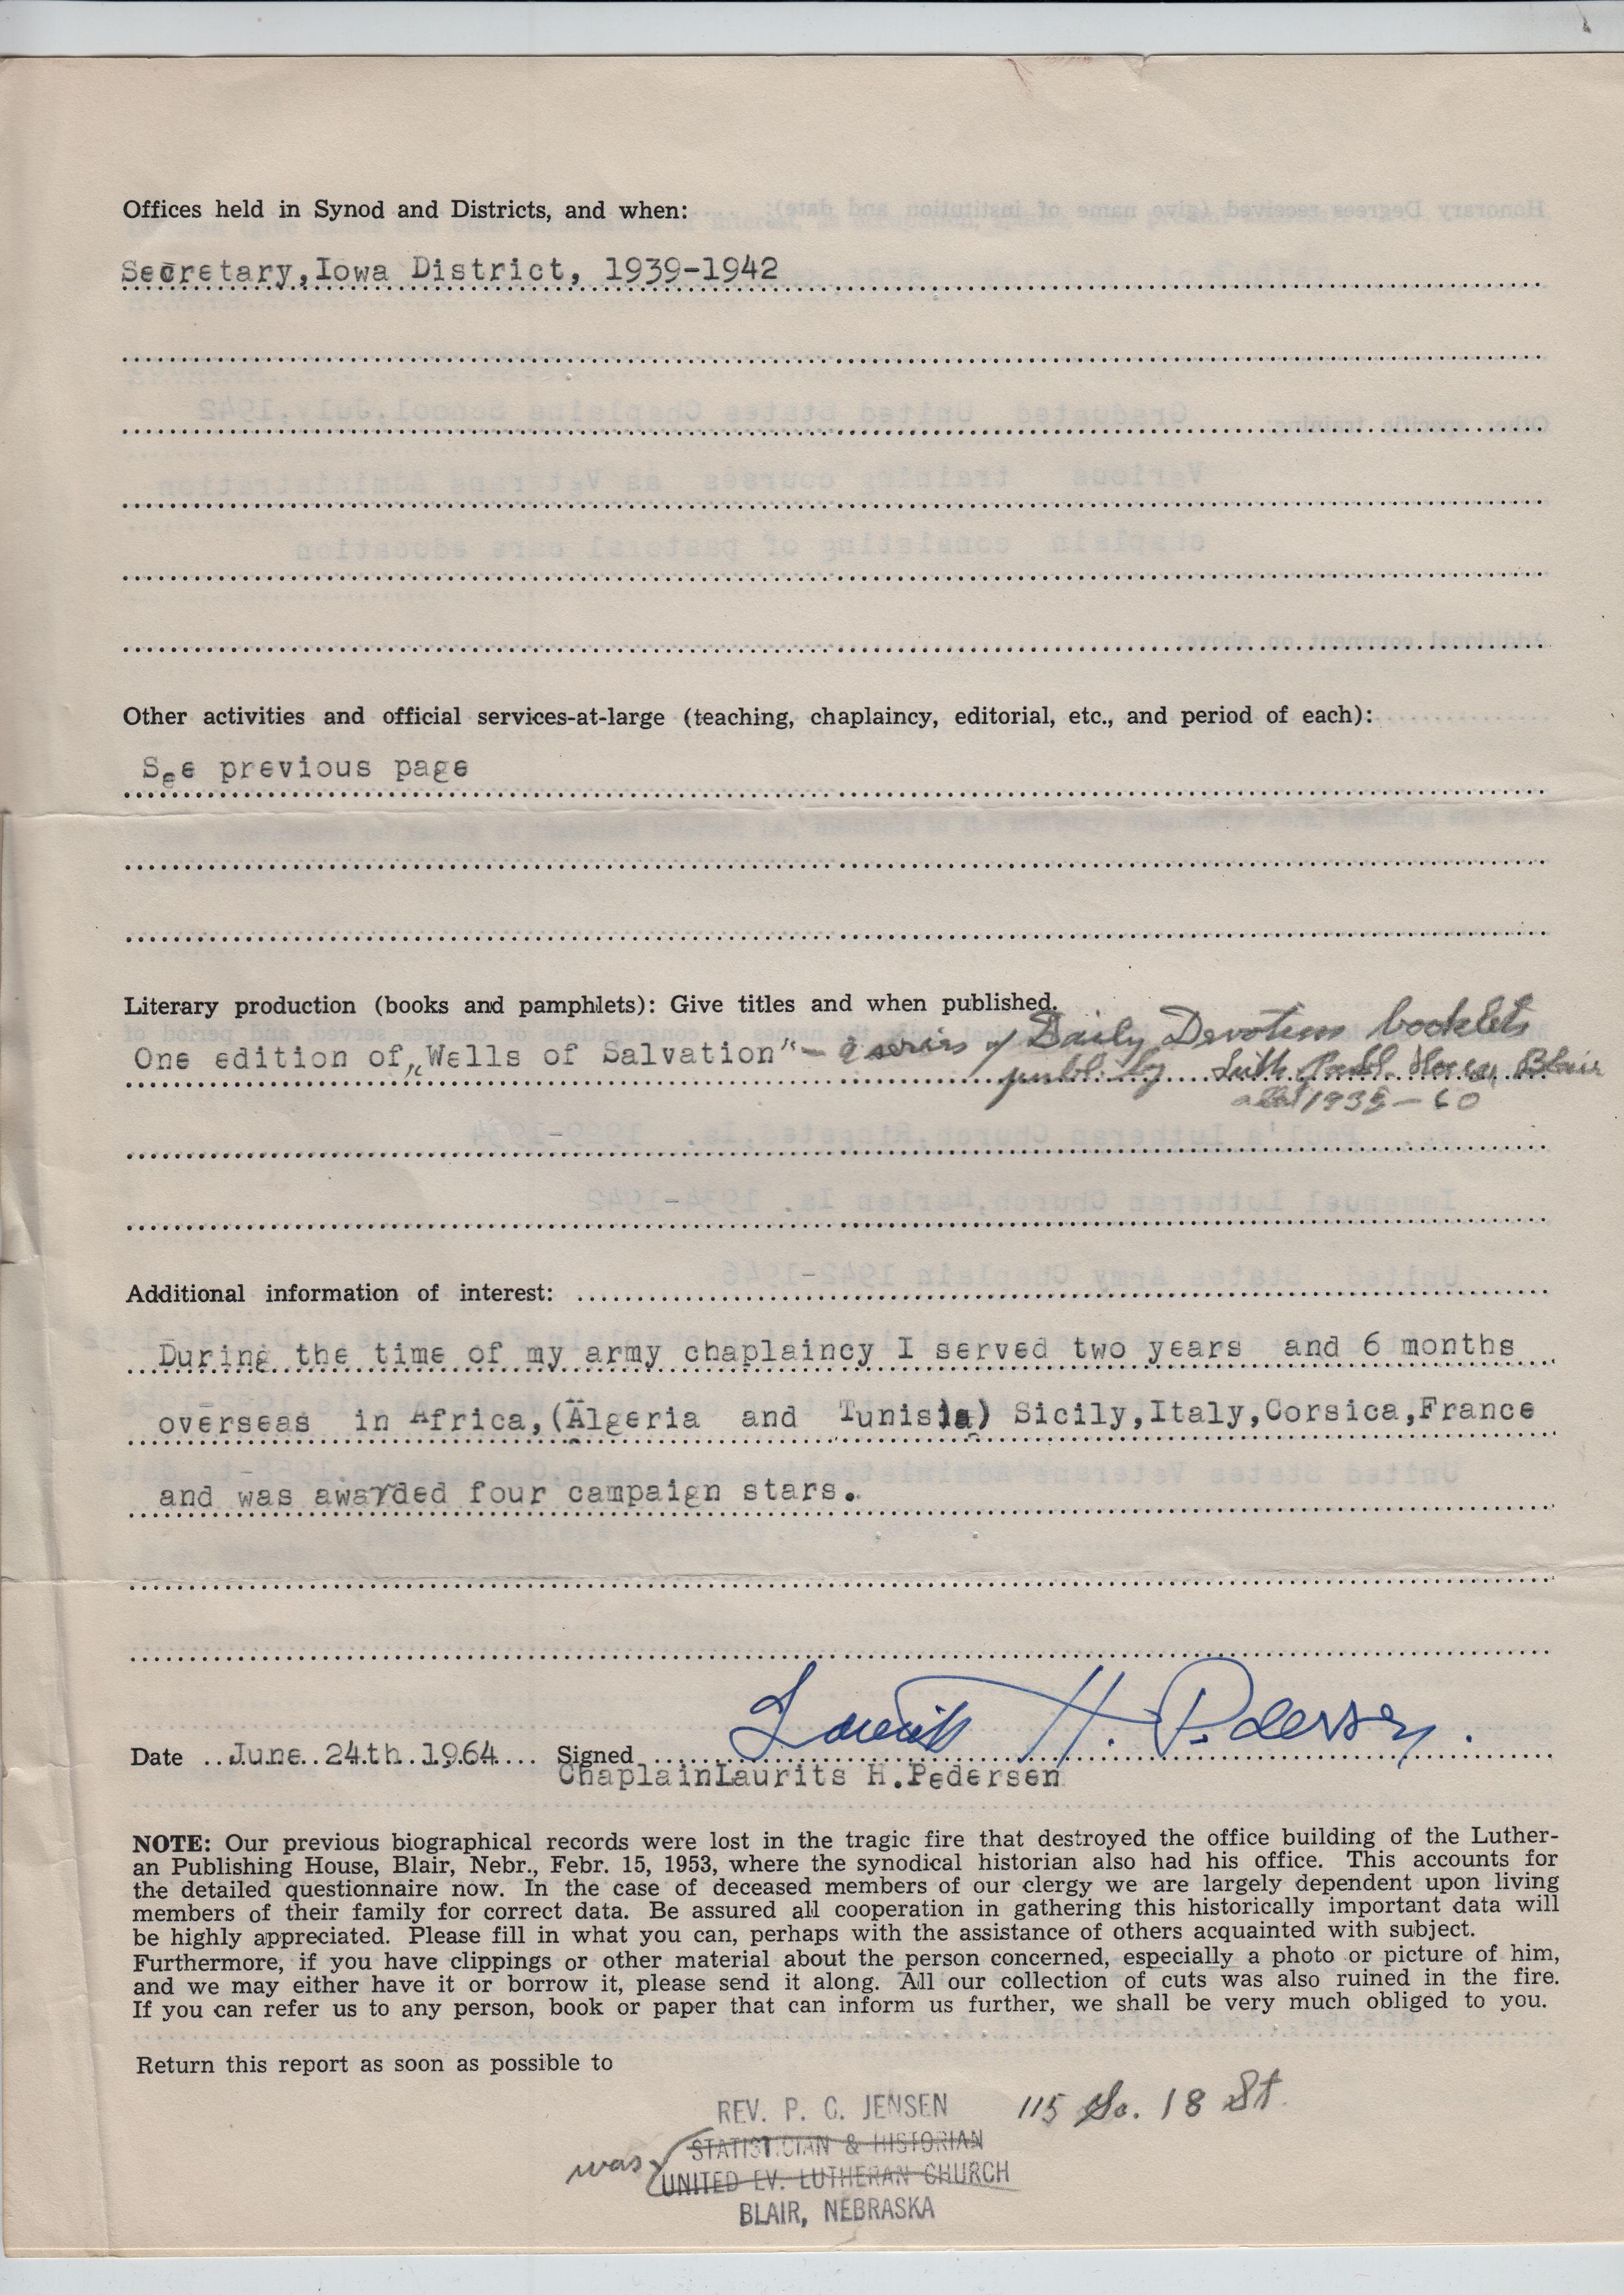 Offices held in Synod and Districts, and when:
Secretary,Iowa District, 1939-1942
Other activities and official services-at-large (teaching, chaplaincy, editorial, etc., and period of each):
See previous page
Literary production (books and pamphlets): Give titles and when published.
One edition of „Wells of Salvation" – a series of Daily Devotion booklets
publ. by Luth. Publ. House, Blair
1935 – 60
Additional information of interest:
During the time of my army chaplaincy I served two years and 6 months
overseas in Africa,(Algeria and Tunisia) Sicily,Italy,Corsica,France
and was awarded four campaign stars.
Laurits H. Pedersen.
Date June 24th 1964 Signed
ChaplainLaurits H.Pedersen
NOTE: Our previous biographical records were lost in the tragic fire that destroyed the office building of the Luther-
an Publishing House, Blair, Nebr., Febr. 15, 1953, where the synodical historian also had his office. This accounts for
the detailed questionnaire now. In the case of deceased members of our clergy we are largely dependent upon living
members of their family for correct data. Be assured all cooperation in gathering this historically important data will
be highly appreciated. Please fill in what you can, perhaps with the assistance of others acquainted with subject.
Furthermore, if you have clippings or other material about the person concerned, especially a photo or picture of him,
and we may either have it or borrow it, please send it along. All our collection of cuts was also ruined in the fire.
If you can refer us to any person, book or paper that can inform us further, we shall be very much obliged to you.
Return this report as soon as possible to
REV. P. C. JENSEN 115 So. 18 St.
STATISTICIAN & HISTORIAN
was UNITED EV. LUTHERAN CHURCH
BLAIR, NEBRASKA